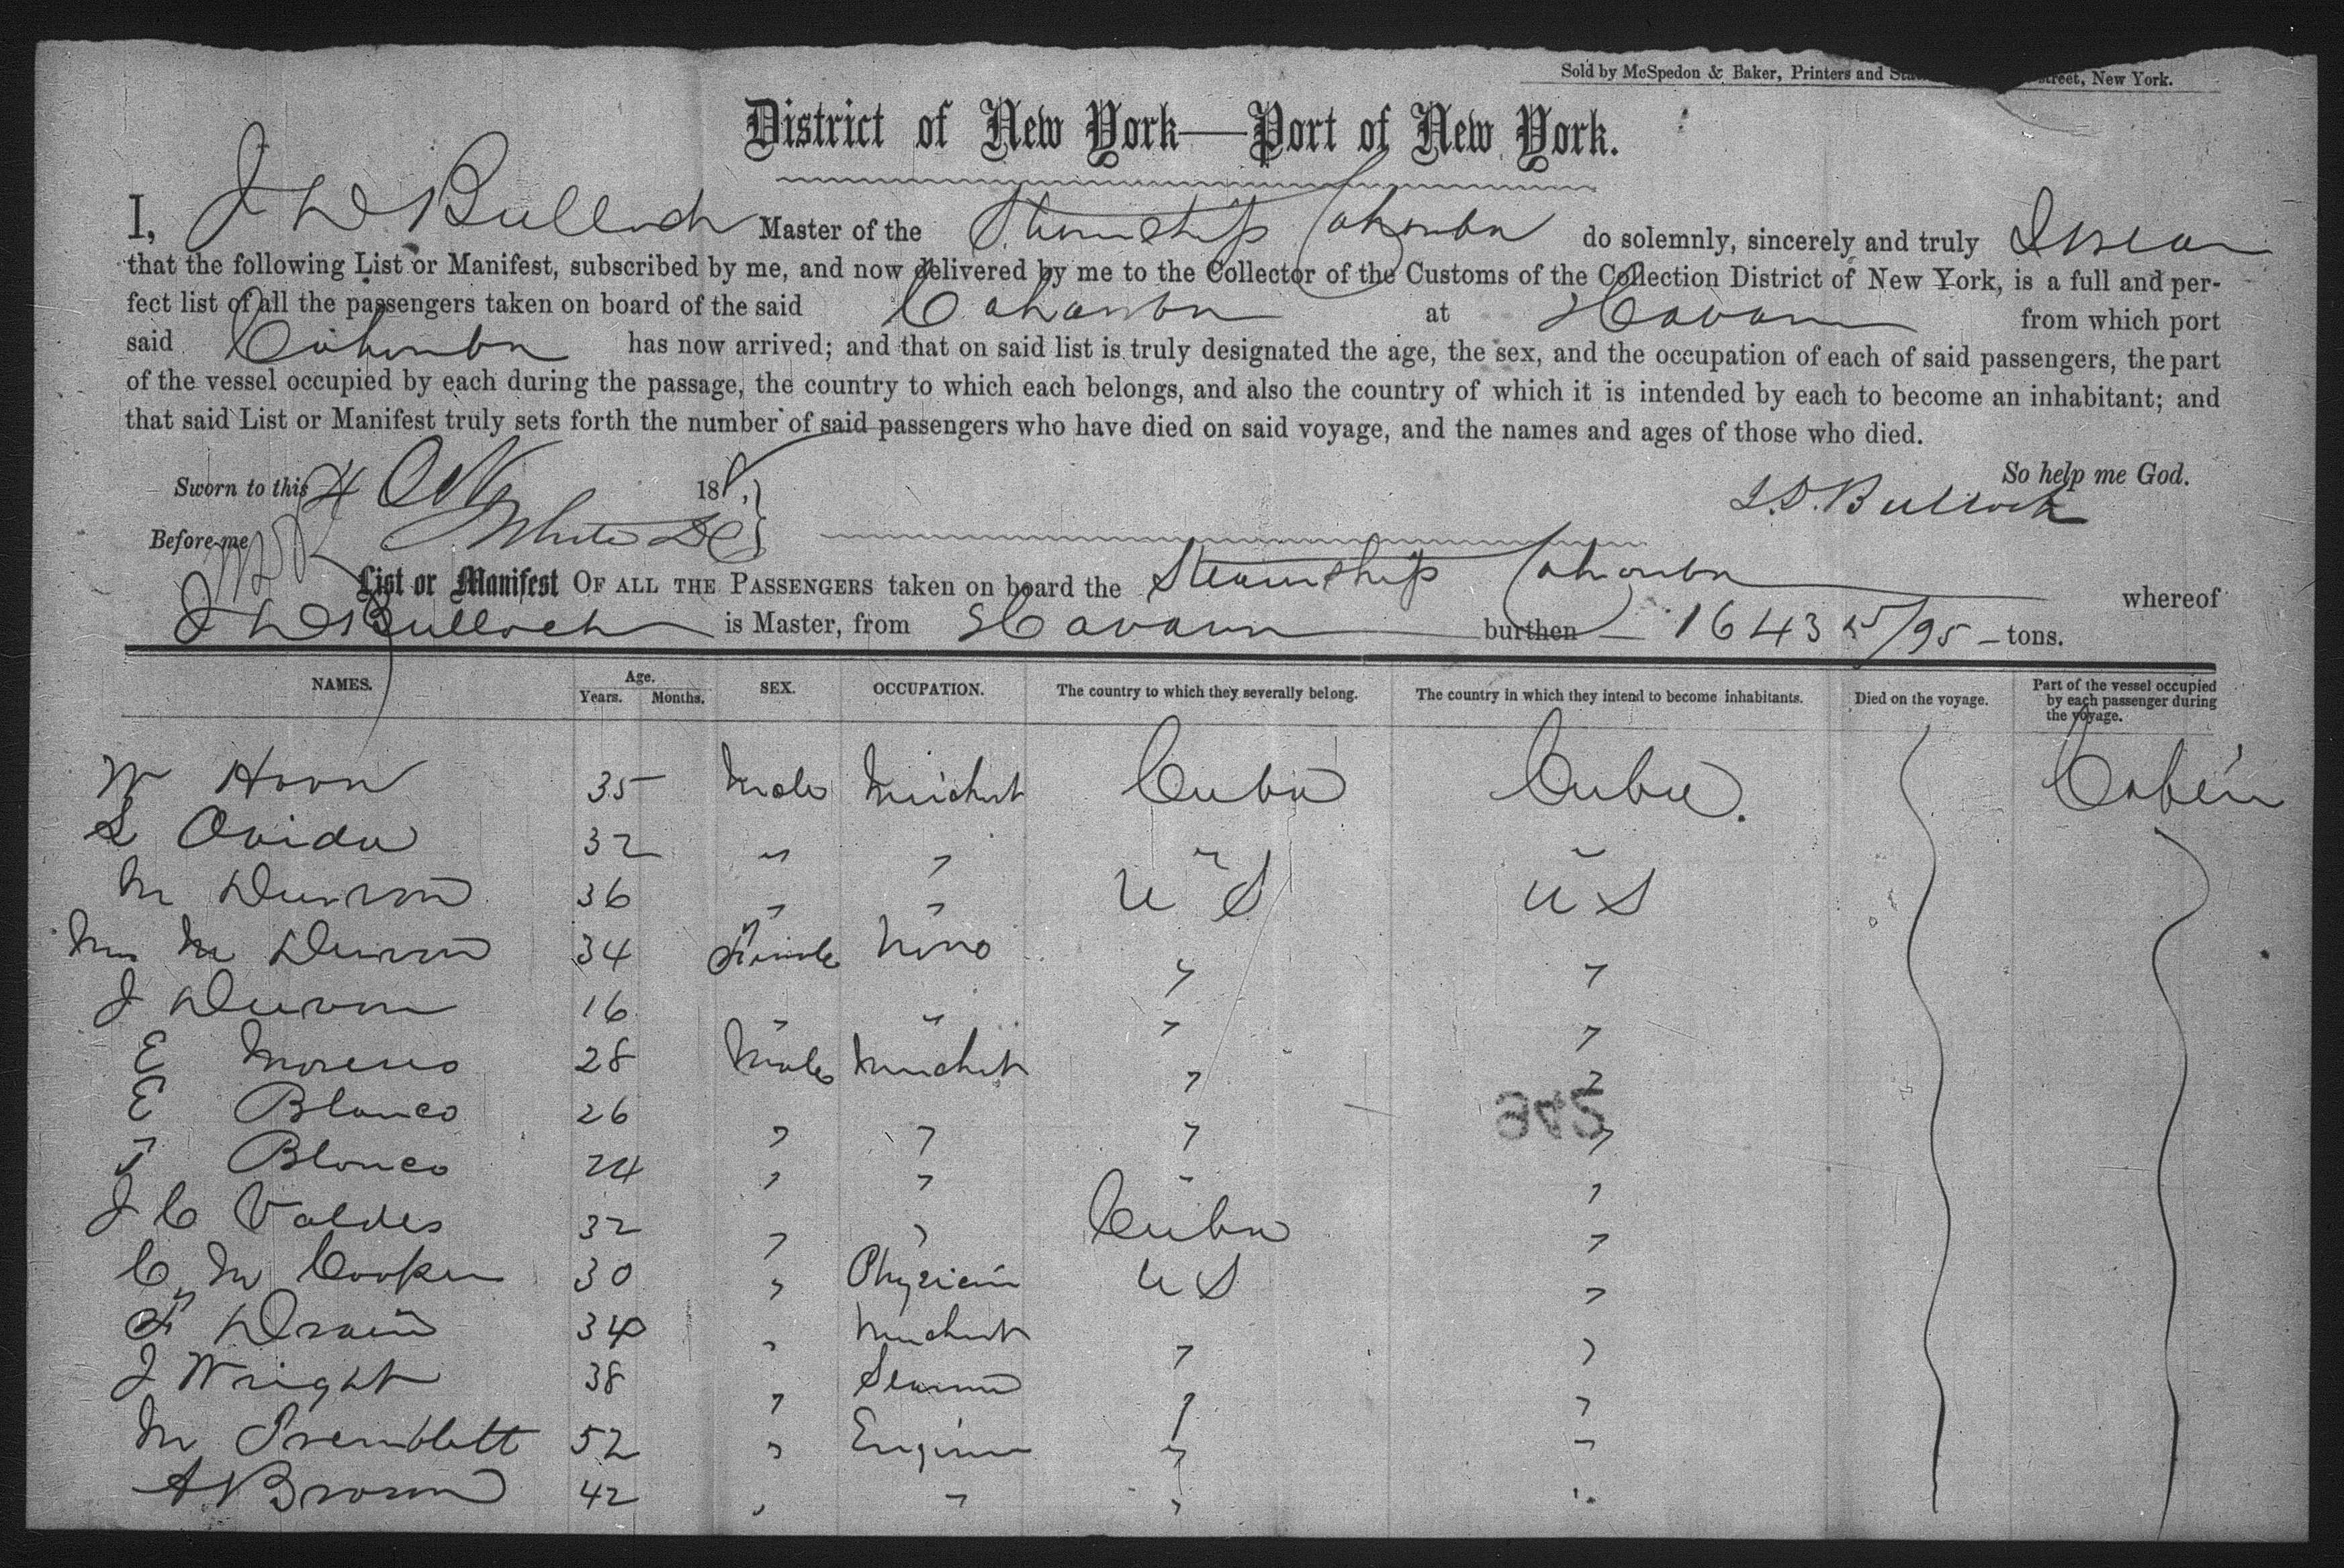 Sold by McSpedon & Baker, Printers and Street, New York.
District of New York—Port of New York.
I, J D Bulloch Master of the Steamship Cahawba do solemnly, sincerely and truly Swear
that the following List or Manifest, subscribed by me, and now delivered by me to the Collector of the Customs of the Collection District of New York, is a full and per-
fect list of all the passengers taken on board of the said Cahawba at Havana from which port
said Cahawba has now arrived; and that on said list is truly designated the age, the sex, and the occupation of each of said passengers, the part
of the vessel occupied by each during the passage, the country to which each belongs, and also the country of which it is intended by each to become an inhabitant; and
that said List or Manifest truly sets forth the number of said passengers who have died on said voyage, and the names and ages of those who died.
So help me God.
Sworn to this 4 18
J. D. Bulloch
Before me White DC
List or Manifest OF ALL THE PASSENGERS taken on board the Steamship Cahawba whereof
J D Bulloch is Master, from Havana burthen 1643 /95 tons.
NAMES. Age. Years. Months. SEX. OCCUPATION. The country to which they severally belong. The country in which they intend to become inhabitants. Died on the voyage. Part of the vessel occupied by each passenger during the voyage.
W 35 Male Merchnt Cuba Cuba. Cabin
L 32 " " " "
M Duran 36 " " U S U S
Mrs M Duran 34 Female None " "
J Duran 16 " " " "
E Moreno 28 Male Merchnt " "
E Blanco 26 " " " "
342
Blanco 24 " " " "
J C Valdes 32 " " Cuba "
C M Cooper 30 " Physician U S "
F Drain 34 " Merchnt " "
J Wright 38 " Seaman " "
M Tremblett 52 " Engineer " "
A Brown 42 " " " "